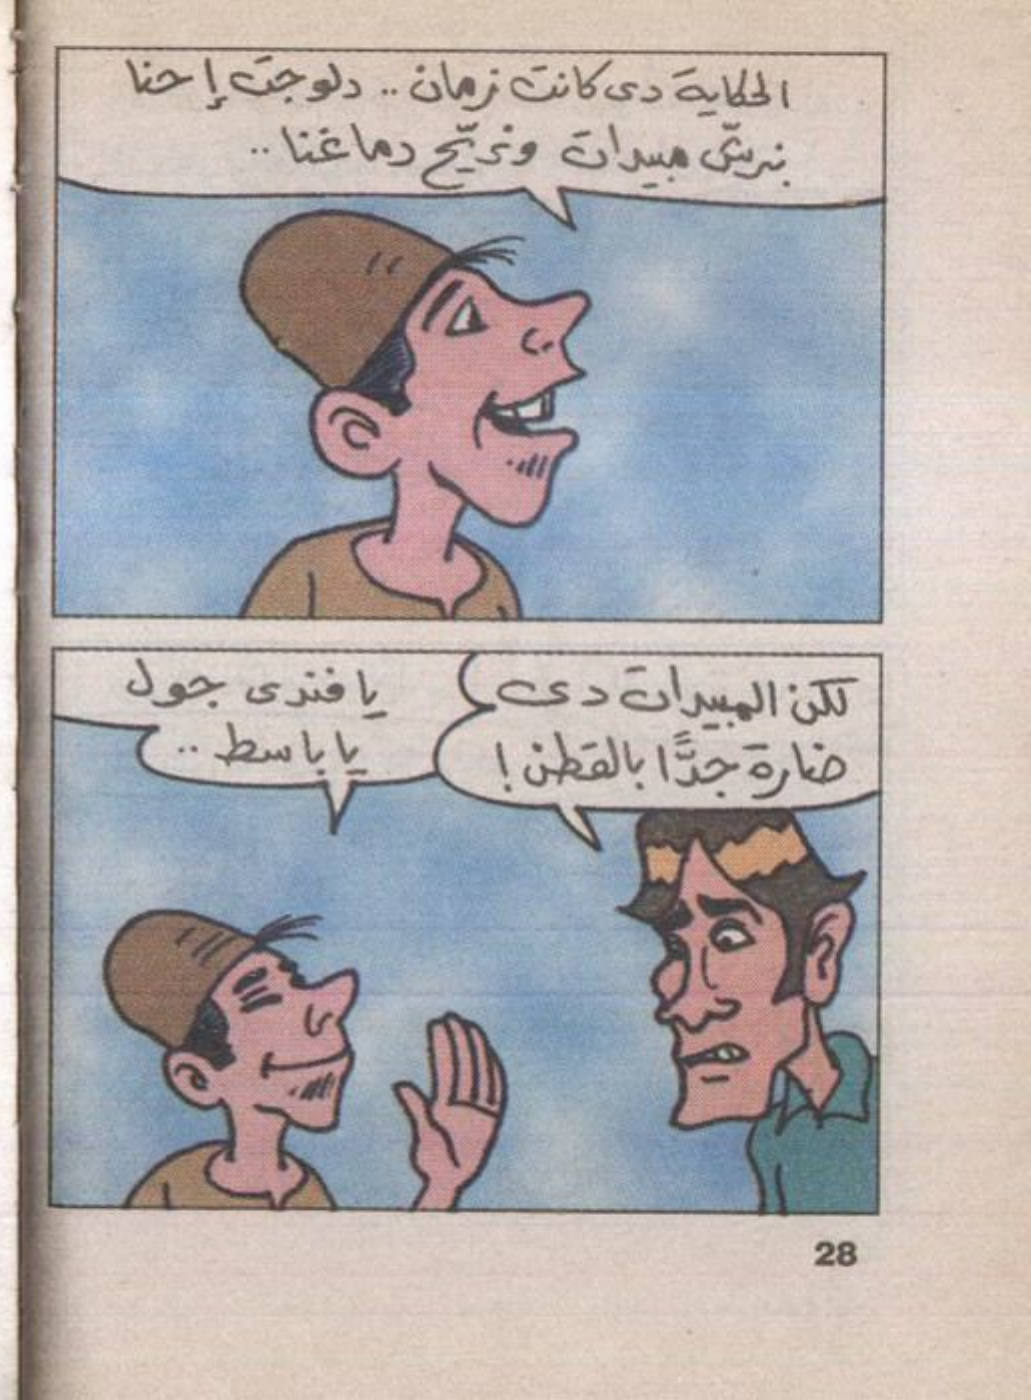 الحكاية دى كانت زمان .. دلوجت إحنا
بنرشّ مبيدات ونريّح دماغنا ..
لكن المبيدات دى
ضارة جدًّا بالقطن !
يا فندى جول
يا باسط ..
28